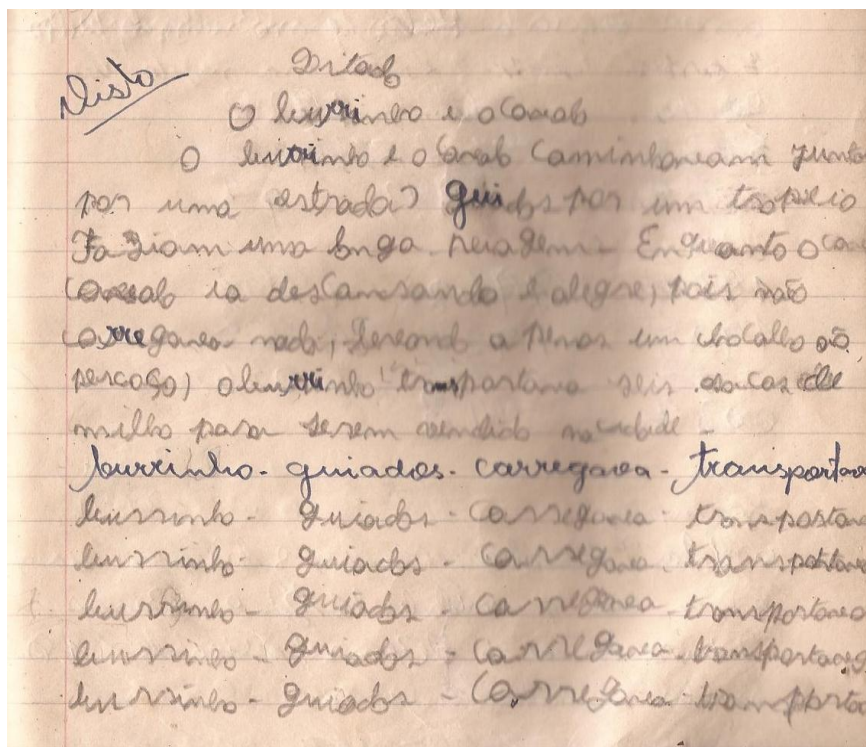 Visto
Ditado
O burrinho e o Cavalo
O burrinho e o Cavalo Caminhavam junto
por uma estrada guiados por um tropeio
Faziam uma longa viagem - Enquanto o ca
Cavalo ia descansando e alegre, pois não
Carregava nada, levando a penas um chocalho ao
pescoço, o burrinho transportava seis sacas de
milho para serem vendido na cidade -
burrinho - guiados - carregava - transportava
burrinho - guiados - Carregava - transportava
burrinho - guiados - Carregava - transportava
burrinho - guiados - Carregava - transportava
burrinho - guiados - Carregava - transportava
burrinho - guiados - Carregava - transporta